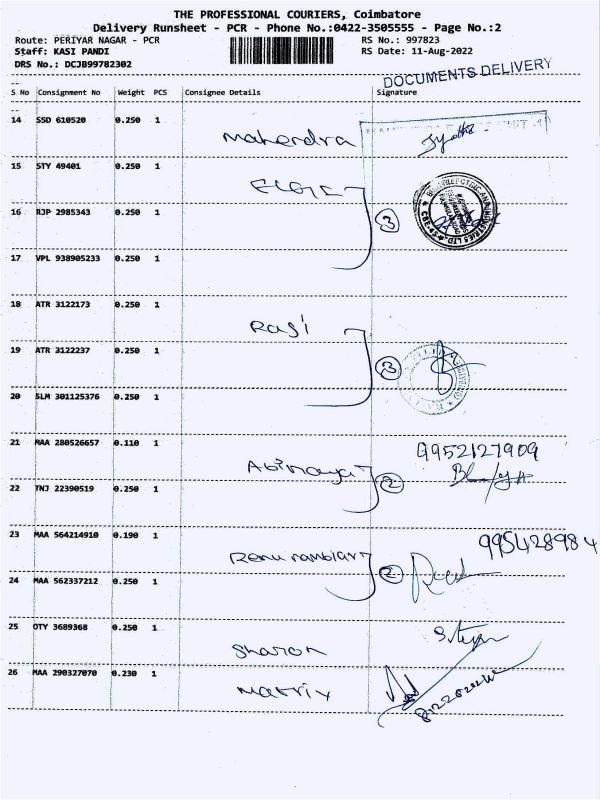 THE PROFESSIONAL COURIERS, Coimbatore
Delivery Runsheet - PCR - Phone No.:0422-3505555 - Page No.:2
Route: PERIYAR NAGAR - PCR RS No.: 997823
Staff: KASI PANDI RS Date: 11-Aug-2022
DRS No.: DCJB99782302
DOCUMENTS DELIVERY
S No Consignment No Weight PCS Consignee Details Signature
14 SSD 610520 0.250 1
Mahendra
15 STY 49401 0.250 1
ELGI
16 RJP 2985343 0.250 1 3
17 VPL 938905233 0.250 1
18 ATR 3122173 0.250 1
Rasi
19 ATR 3122237 0.250 1 3
20 SLM 301125376 0.250 1
21 MAA 280526657 0.110 1 9952127909
Abinaya
22 TNJ 22390519 0.250 1 2
23 MAA 564214910 0.190 1 995428984
Renu nambiar
24 MAA 562337212 0.250 1 2
25 OTY 3689368 0.250 1
Sharon
26 MAA 290327070 0.230 1
Matrix